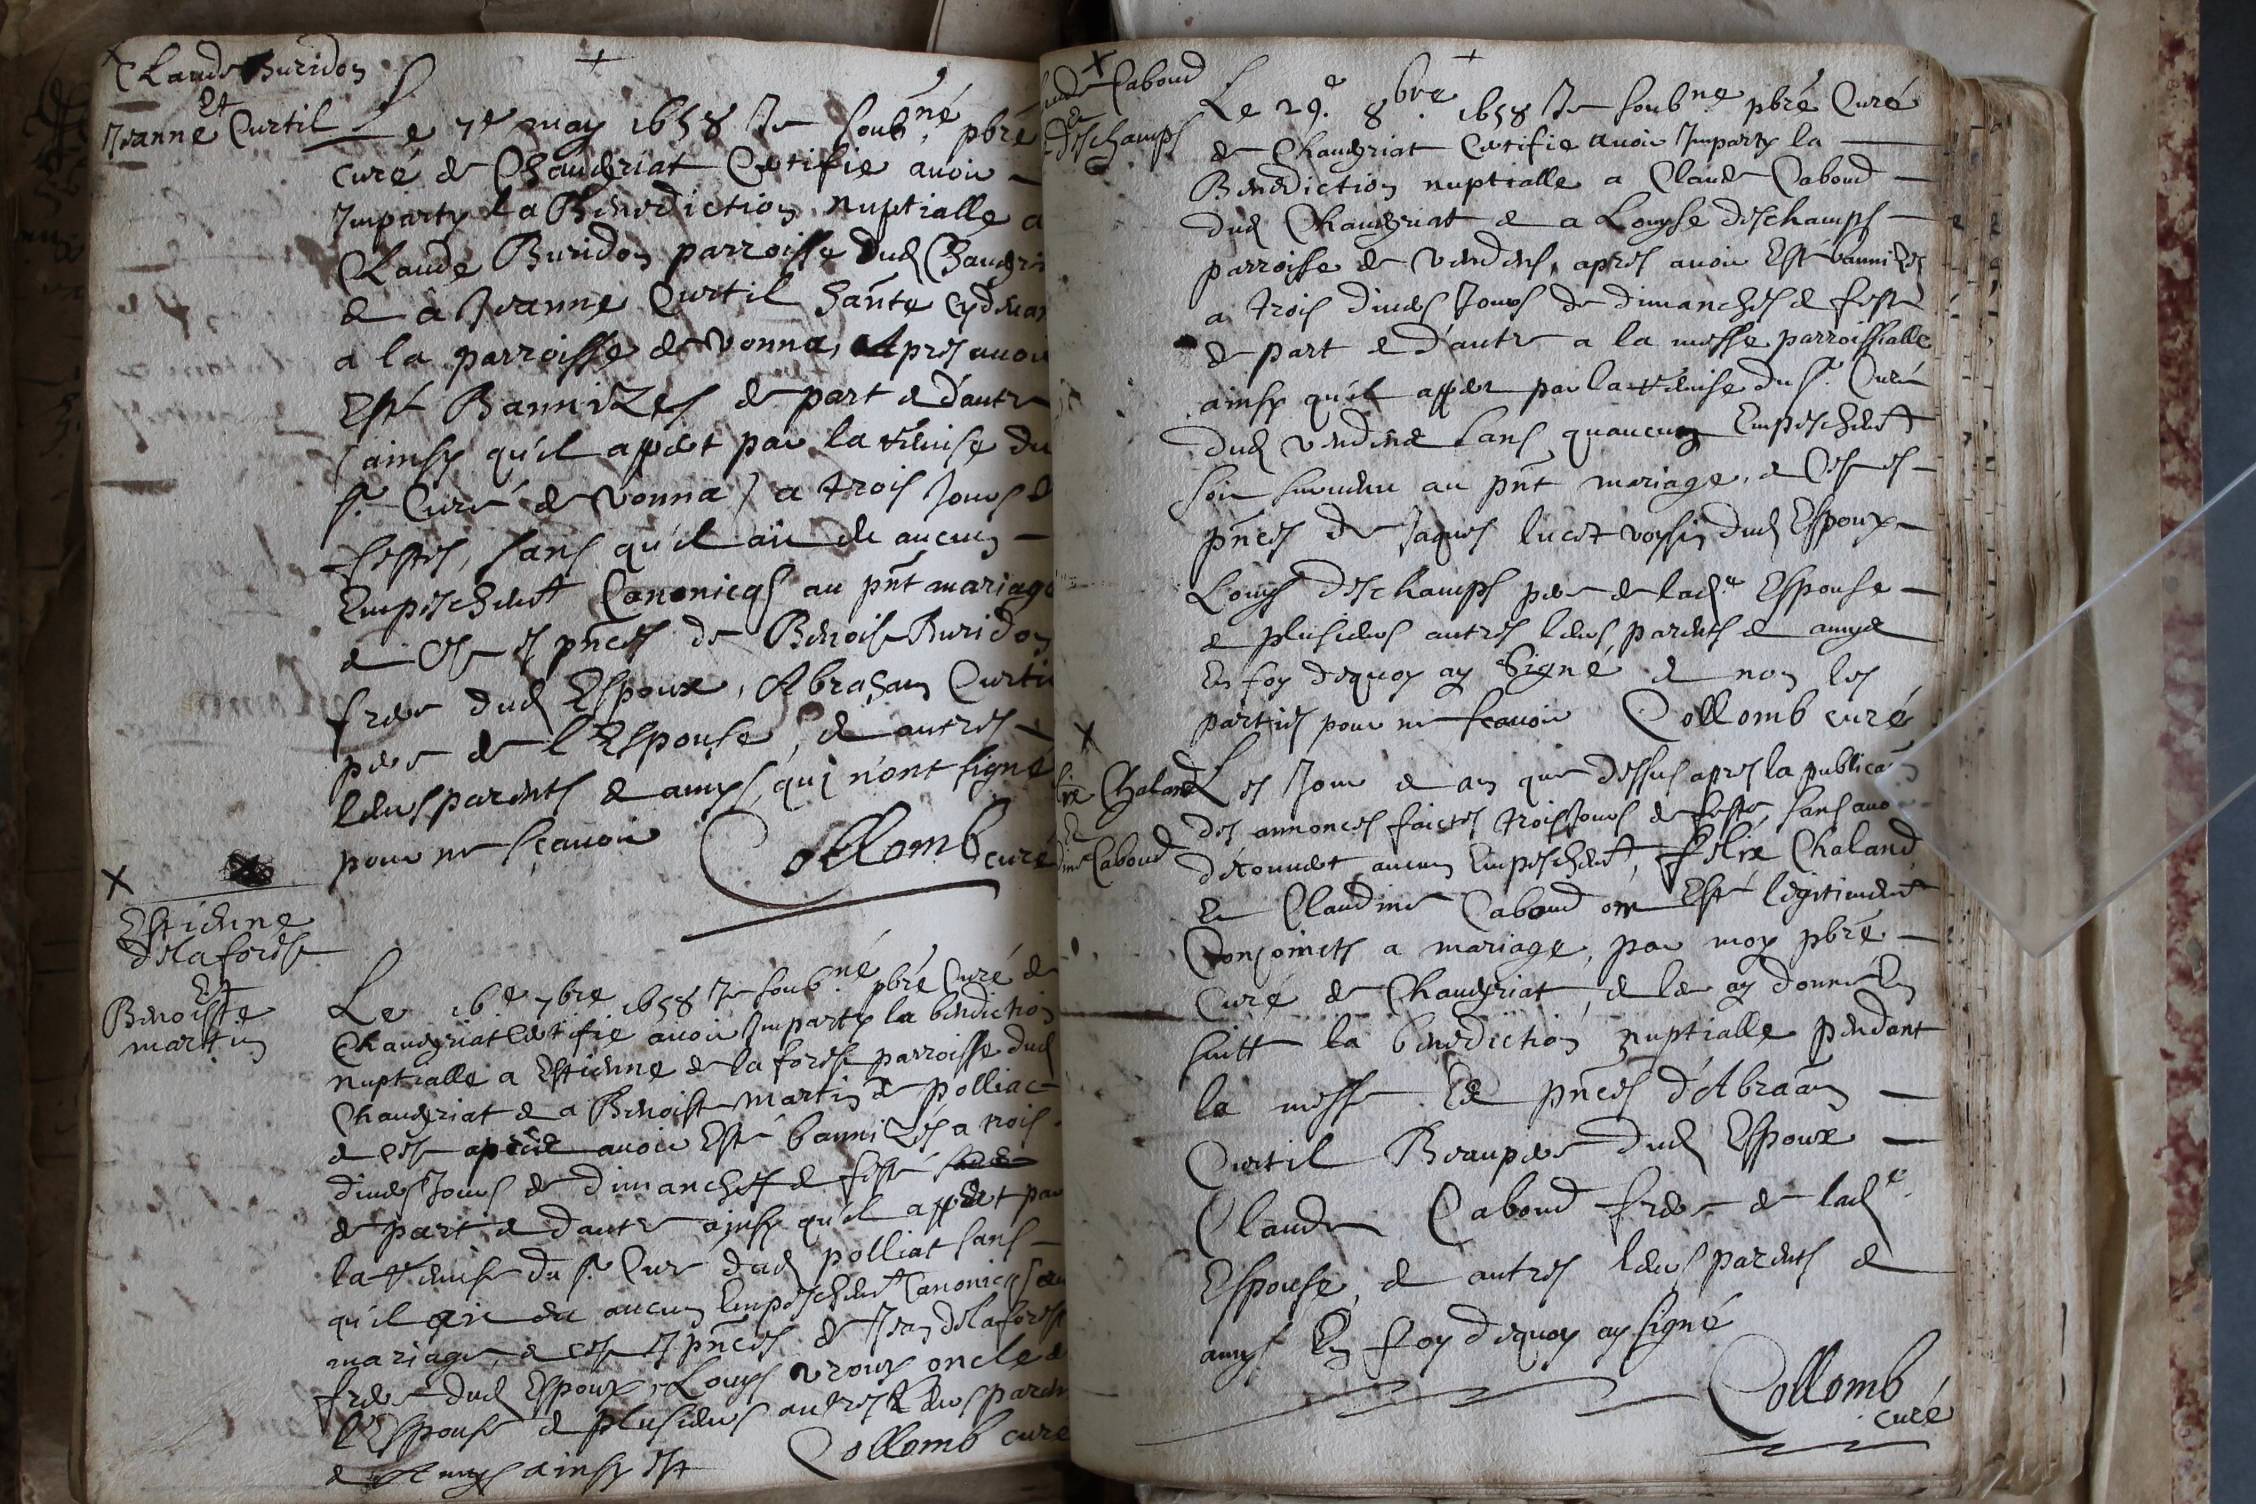 Claude Buridon
Et
Jeanne Curtil
Le 7e may 1658 Je soubne pbre
curé de Chaveyriat Certifie avoir
Jmparty la Benediction nuptialle a
Claude Buridon parroisse dud Chaveyri
& a Jeanne Curtil hante cydevan
a la parroisse de vonna, Apres avoir
Esté Bannizes de part & d'autre
(ainsy qu'il appert par la du
sr Curé de vonna) a trois Jours de
festes, sans qu'il aie eu aucun
Empeschemt Canonicqs au pnt mariage
& Ce es pnces de Benoist Buridon
frere dud Espoux, Abraham Curtil
pere de l'Espouse, & autres
leurs parents & amys, qui n'ont signé
pour ne sçavoir Collomb curé
Estienne
delaforest
Et
Benoiste
martin
Le 16e 7bre 1658 Je soubné pbre Curé de
Chaveyriat Certifie avoir Jmparty la benediction
nuptialle a Estienne de la forest parroisse dud
Chaveyriat & a Benoiste martin de polliac
& ce apres avoir Esté bannizés a trois
divers Jours de dimanches & feste
de part & dautre ainsy qu'il appert par
la du sr Curé dud polliat sans
qu'il aie eu aucun Empeschemt Canonicqs au
mariage, & ce es pnces de Jean delaforest
frere dud Espoux, Louys vroux oncle de
l'Espouse & plusieurs autres leurs paren
& Amys ainsy est Collomb curé
Caboud
&
deschamps
Le 29e 8bre 1658 Je soubne pbre Curé
de Chaveyriat Certifie avoir Jmparty la
Benediction nuptialle a Claude Caboud
dud Chaveyriat & a Louyse deschamps
parroisse de vendens, apres avoir Esté bannizes
a trois divers Jours de dimanches & feste
de part & d'autre a la messe parroissialle
ainsy qu'il appert par la du sr Curé
dud sans quaucun Empeschemt
soit survenu au pnt mariage, & Ce es
pnces de Jaques lucet voysin dud Espoux
Louys deschamps pere de lade Espouse
& plusieurs autres leurs parents & amys
En foy dequoy ay signé & non les
parties pour ne sçavoir Collomb curé
Chaland
&
Caboud
Les Jour & an que dessus apres la publicaon
des annonces faictes trois Jours de feste, sans avoir
decouvert aucun Empeschemt, felix Chaland
Et Claudine Caboud ont Esté legitimemt
Conjoincts a mariage, par moy pbre
Curé de Chaveyriat, & leur ay donné En
suitt la benediction nuptialle pendant
la messe Es pnces d'Abraam
Curtil Beaupere dud Espoux
Claude Caboud frere de lade
Espouse, & autres leurs parents &
amys En foy dequoy ay signé
Collomb
curé